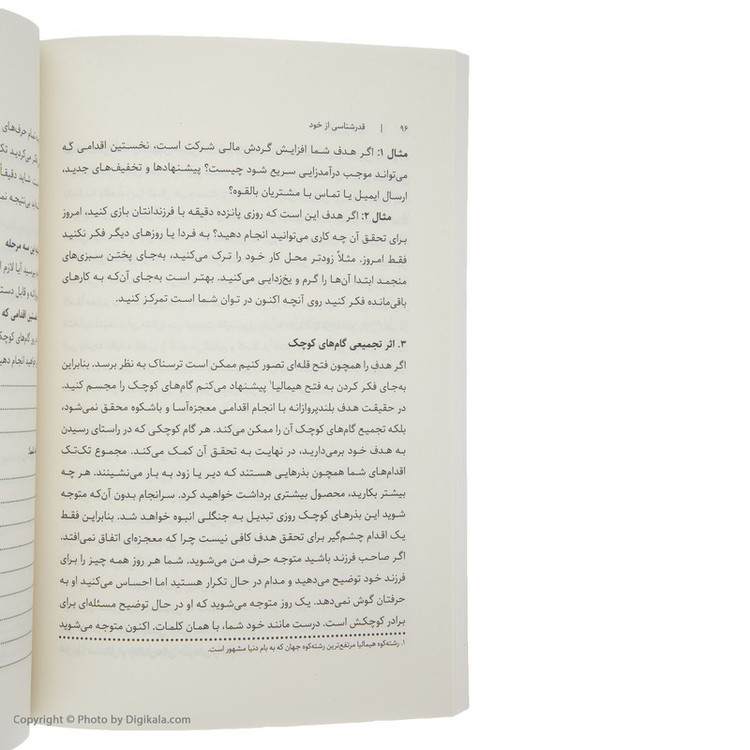 ۹۶ | قدرشناسی از خود
مثال ۱: اگر هدف شما افزایش گردش مالی شرکت است، نخستین اقدامی که
می‌تواند موجب درآمدزایی سریع شود چیست؟ پیشنهادها و تخفیف‌های جدید،
ارسال ایمیل یا تماس با مشتریان بالقوه؟
مثال ۲: اگر هدف این است که روزی پانزده دقیقه با فرزندانتان بازی کنید، امروز
برای تحقق آن چه کاری می‌توانید انجام دهید؟ به فردا یا روزهای دیگر فکر نکنید
فقط امروز. مثلاً زودتر محل کار خود را ترک می‌کنید، به‌جای پختن سبزی‌های
منجمد ابتدا آن‌ها را گرم و یخ‌زدایی می‌کنید. بهتر است به‌جای آن‌که به کارهای
باقی‌مانده فکر کنید روی آنچه اکنون در توان شما است تمرکز کنید.
۳. اثر تجمیعی گام‌های کوچک
اگر هدف را همچون فتح قله‌ای تصور کنیم ممکن است ترسناک به نظر برسد. بنابراین
به‌جای فکر کردن به فتح هیمالیا۱ پیشنهاد می‌کنم گام‌های کوچک را مجسم کنید.
در حقیقت هدف بلندپروازانه با انجام اقدامی معجزه‌آسا و باشکوه محقق نمی‌شود،
بلکه تجمیع گام‌های کوچک آن را ممکن می‌کند. هر گام کوچکی که در راستای رسیدن
به هدف خود برمی‌دارید، در نهایت به تحقق آن کمک می‌کند. مجموع تک‌تک
اقدام‌های شما همچون بذرهایی هستند که دیر یا زود به بار می‌نشینند. هر چه
بیشتر بکارید، محصول بیشتری برداشت خواهید کرد. سرانجام بدون آن‌که متوجه
شوید این بذرهای کوچک روزی تبدیل به جنگلی انبوه خواهد شد. بنابراین فقط
یک اقدام چشم‌گیر برای تحقق هدف کافی نیست چرا که معجزه‌ای اتفاق نمی‌افتد.
اگر صاحب فرزند باشید متوجه حرف من می‌شوید. شما هر روز همه چیز را برای
فرزند خود توضیح می‌دهید و مدام در حال تکرار هستید اما احساس می‌کنید او به
حرفتان گوش نمی‌دهد. یک روز متوجه می‌شوید که او در حال توضیح مسئله‌ای برای
برادر کوچکش است. درست مانند خود شما، با همان کلمات. اکنون متوجه می‌شوید
۱. رشته‌کوه هیمالیا مرتفع‌ترین رشته‌کوه جهان که به بام دنیا مشهور است.
حرف‌های
می‌کردید
شاید دقیقاً
سه مرحله
آیا لازم
اقدامی که
گام‌های کوچک
انجام دهید
Copyright © Photo by Digikala.com